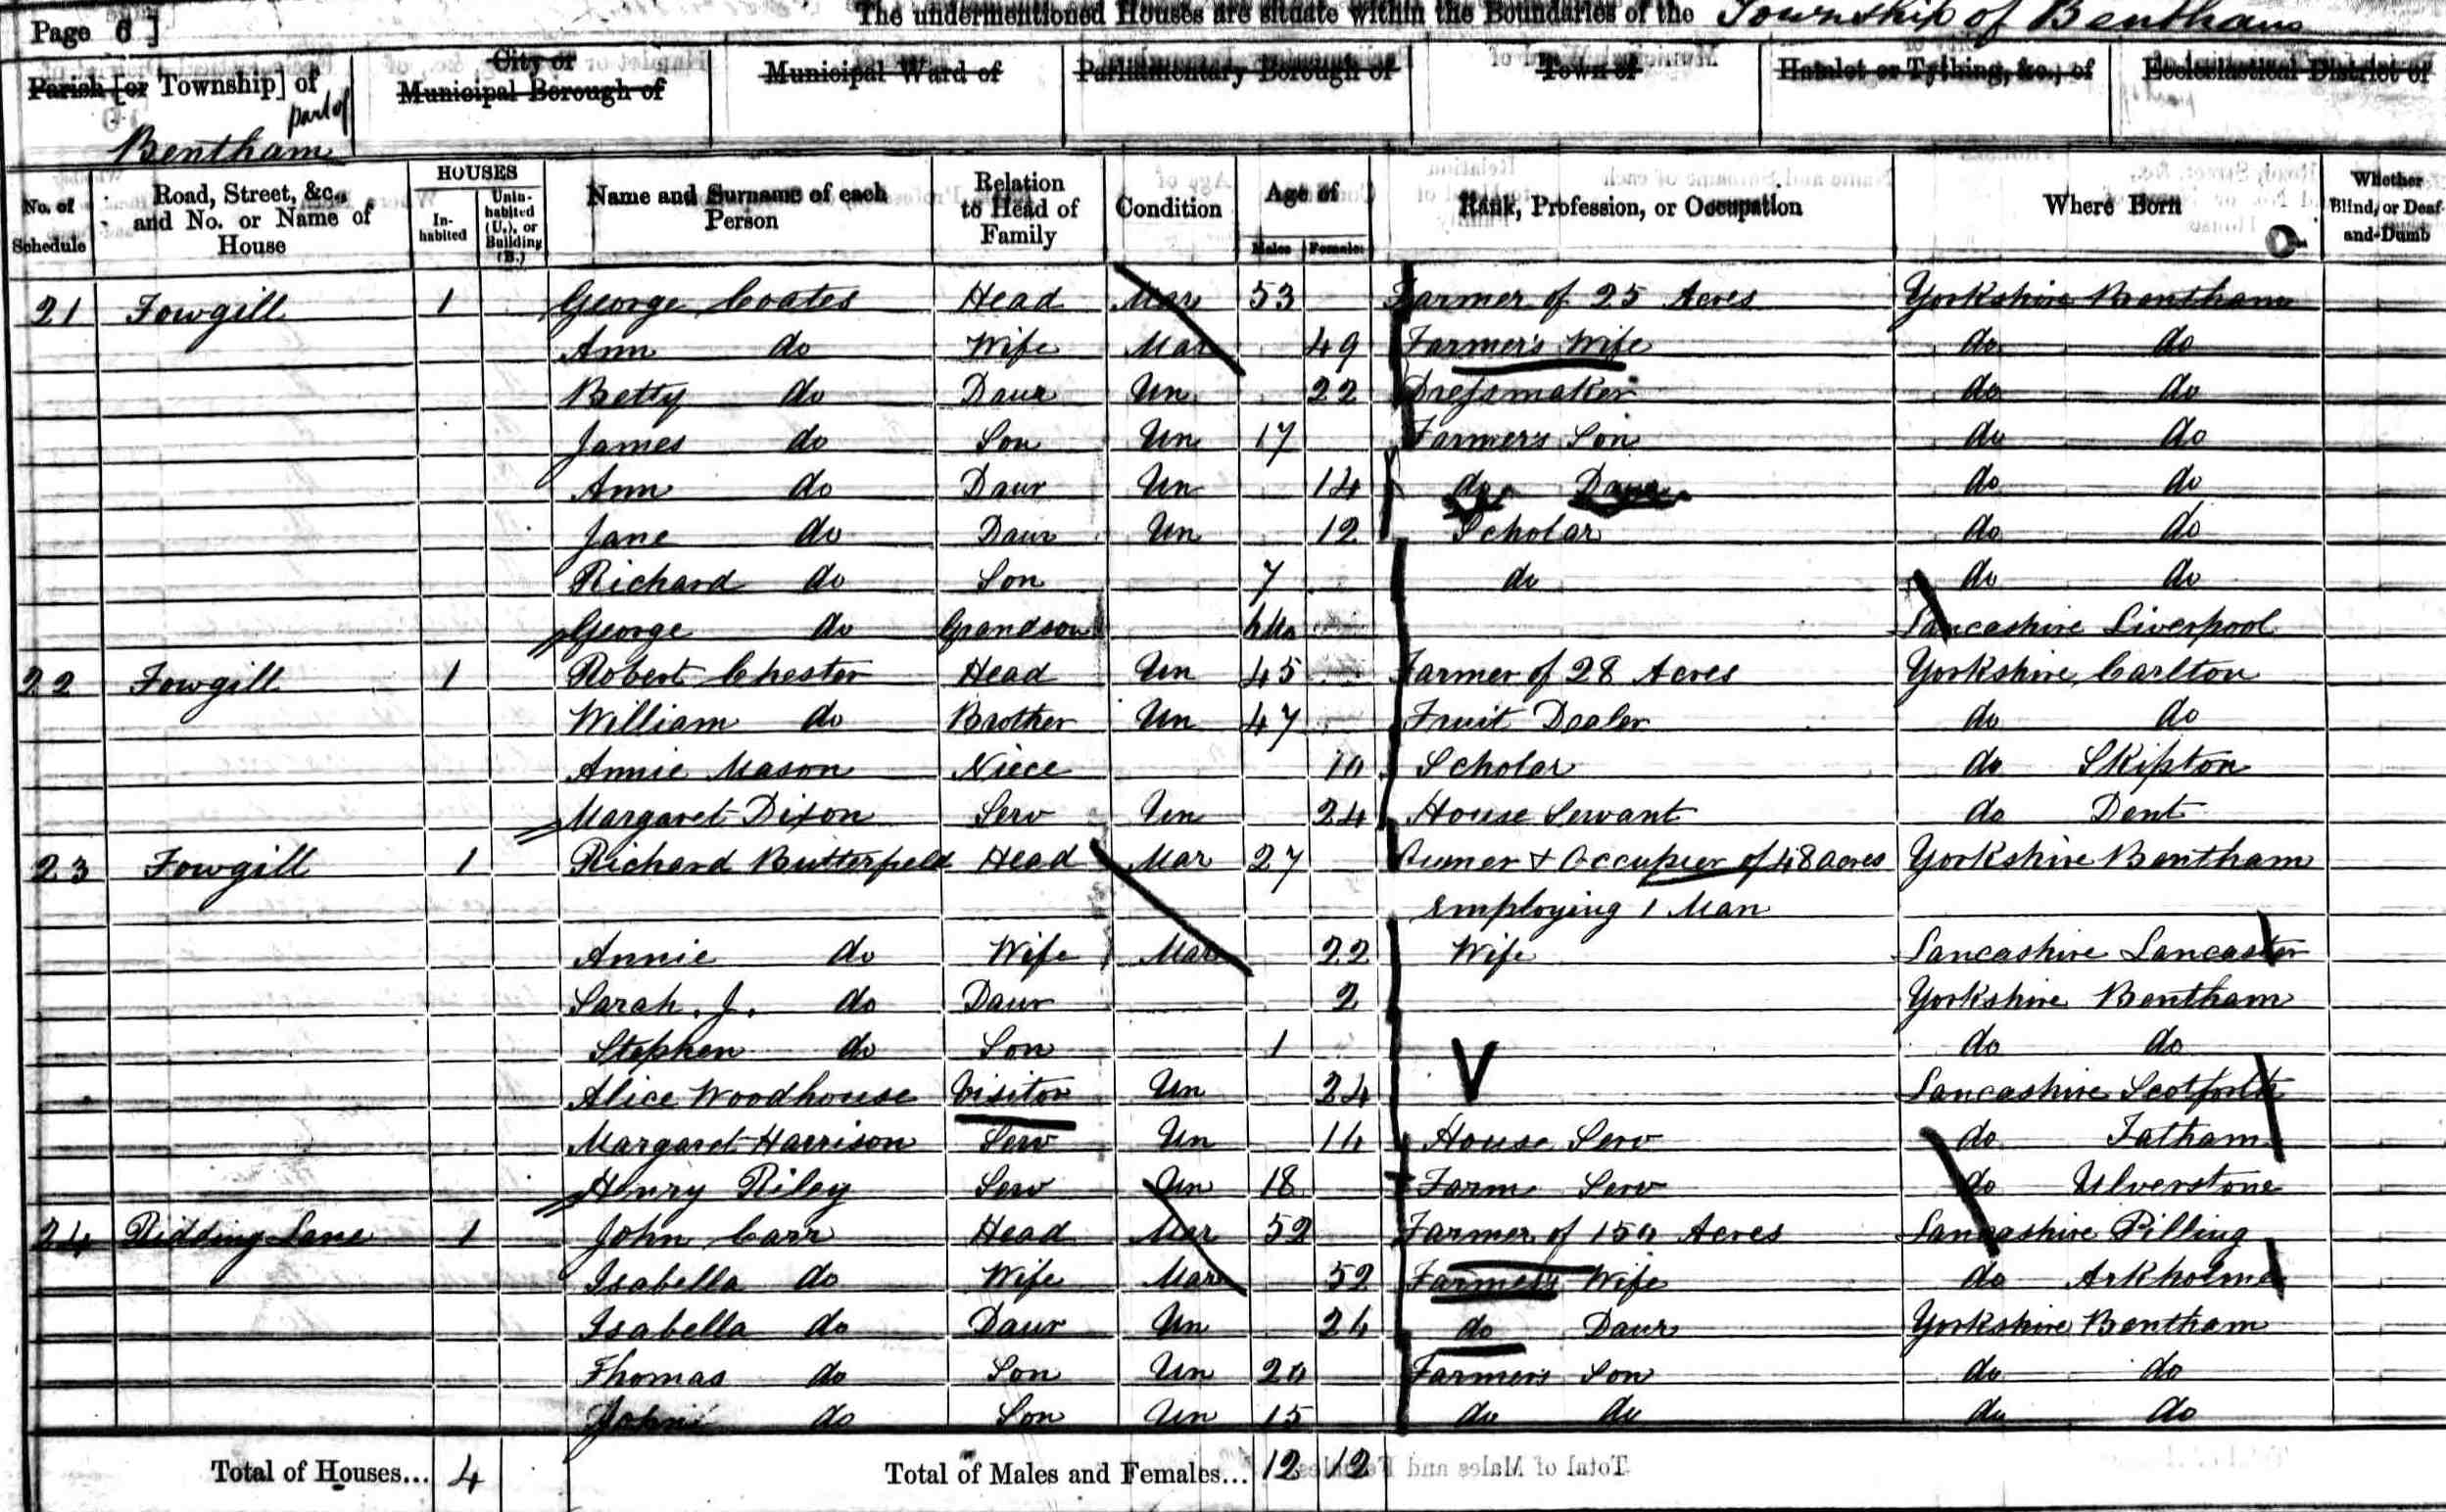 Page 6] The undermentioned Houses are situate within the Boundaries of the Township of Bentham
Parish [or Township] of part of Bentham
City or Municipal Borough of
Municipal Ward of
Parliamentary Borough of
Town of
Hamlet or Tything, &c., of
Ecclesiastical District of
No. of Schedule
Road, Street, &c., and No. or Name of House
HOUSES
In-habited
Unin-habited (U.), or Building (B.)
Name and Surname of each Person
Relation to Head of Family
Condition
Age of
Males Females
Rank, Profession, or Occupation
Where Born
Whether Blind, or Deaf-and-Dumb
21 Fowgill 1 George Coates Head Mar 53 Farmer of 25 Acres Yorkshire Bentham
Ann do Wife Mar 49 Farmer's Wife do do
Betty do Daur Un 22 Dressmaker do do
James do Son Un 17 Farmers Son do do
Ann do Daur Un 14 do Daur do do
Jane do Daur Un 12 Scholar do do
Richard do Son 7 do do do
George do Grandson Lancashire Liverpool
22 Fowgill 1 Robert Chester Head Un 45 Farmer of 28 Acres Yorkshire Carlton
William do Brother Un 47 Fruit Dealer do do
Annie Mason Niece 10 Scholar do Skipton
Margaret Dixon Serv Un 24 House Servant do Dent
23 Fowgill 1 Richard Butterfield Head Mar 27 Owner & Occupier of 48 acres Yorkshire Bentham
employing 1 Man
Annie do Wife Mar 22 Wife Lancashire Lancaster
Sarah. J. do Daur 2 Yorkshire Bentham
Stephen do Son 1 do do
Alice Woodhouse Visitor Un 24 Lancashire Scotforth
Margaret Harrison Serv Un 14 House Serv do Tatham
Henry Riley Serv Un 18 Farm Serv do Ulverstone
24 Ridding Lane 1 John Carr Head Mar 52 Farmer of 150 Acres Lancashire Pilling
Isabella do Wife Mar 52 Farmers Wife do Arkholme
Isabella do Daur Un 24 do Daur Yorkshire Bentham
Thomas do Son Un 20 Farmers Son do do
John do Son Un 15 do do do do
Total of Houses... 4 Total of Males and Females... 12 12